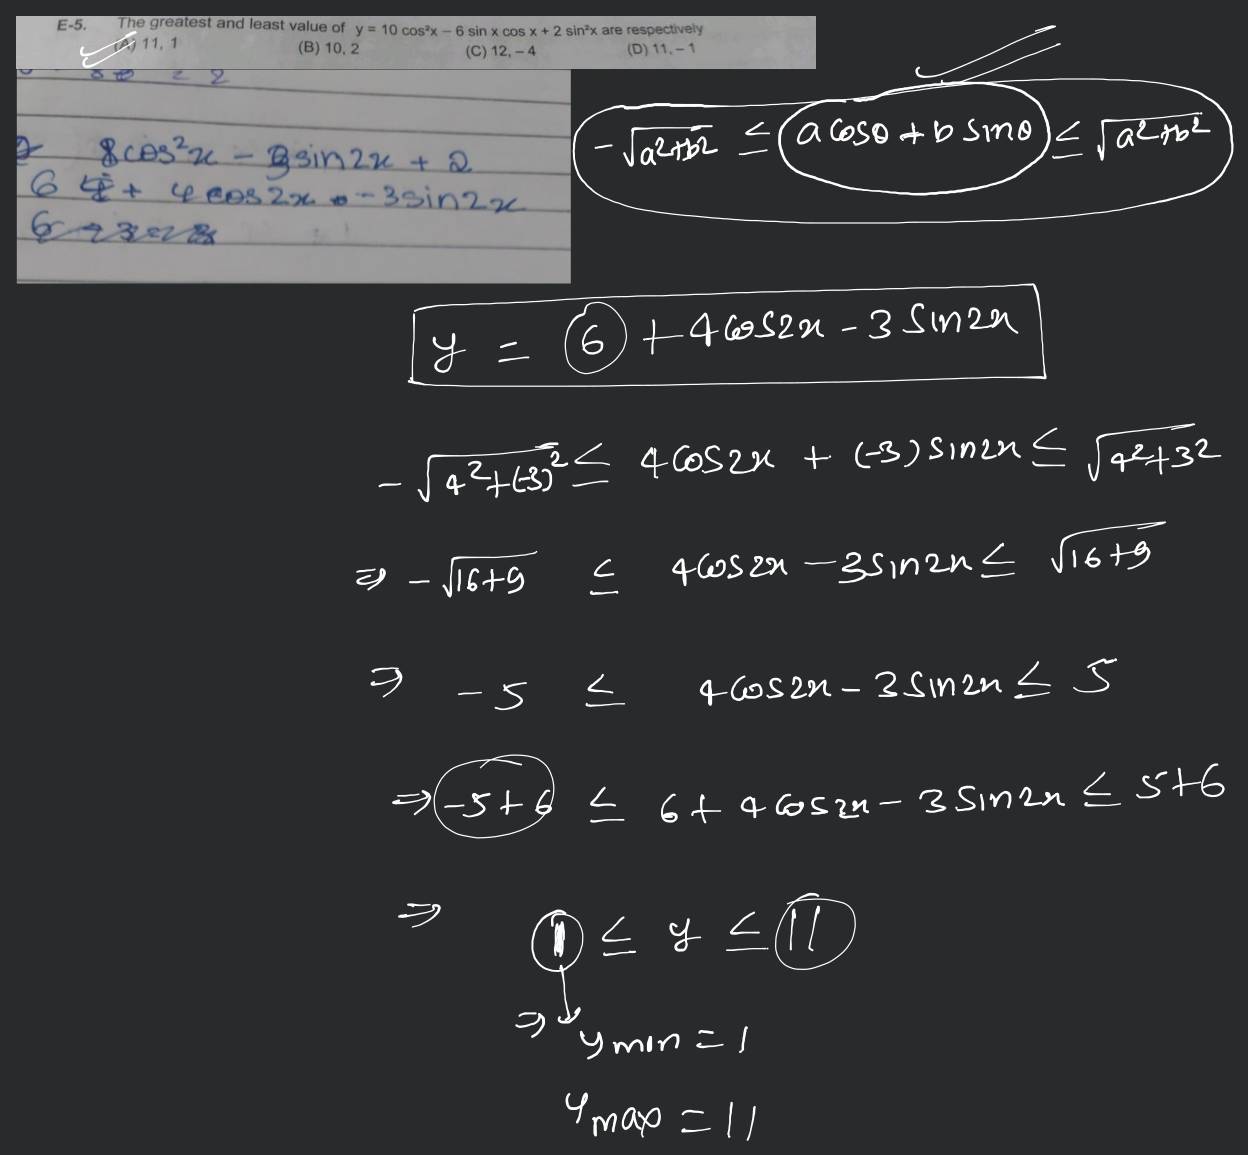 E-5. The greatest and least value of y = 10 cos²x – 6 sin x cos x + 2 sin²x are respectively
(A) 11, 1 (B) 10, 2 (C) 12, – 4 (D) 11, – 1
8cos²x - 3sin2x + 2
6 + 4cos2x - 3sin2x
-√a²+b² ≤ a cosθ + b sinθ ≤ √a²+b²
y = 6 + 4cos2x - 3sin2x
-√4²+(-3)² ≤ 4cos2x + (-3)sin2x ≤ √4²+3²
⇒ -√16+9 ≤ 4cos2x - 3sin2x ≤ √16+9
⇒ -5 ≤ 4cos2x - 3sin2x ≤ 5
⇒ -5+6 ≤ 6+4cos2x - 3sin2x ≤ 5+6
⇒ 1 ≤ y ≤ 11
⇒ ymin = 1
ymax = 11